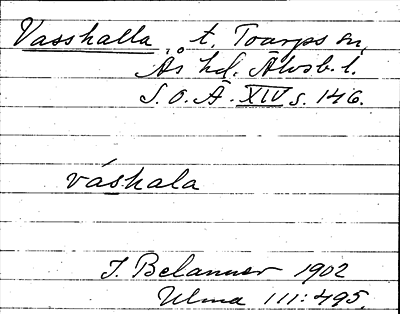 Vasshalla t. Toarps sn,
Ås hd. Älvsb. l.
S. O. Ä. XIV s. 146.
váshala
J. Belanner 1902
Ulma 111:495,